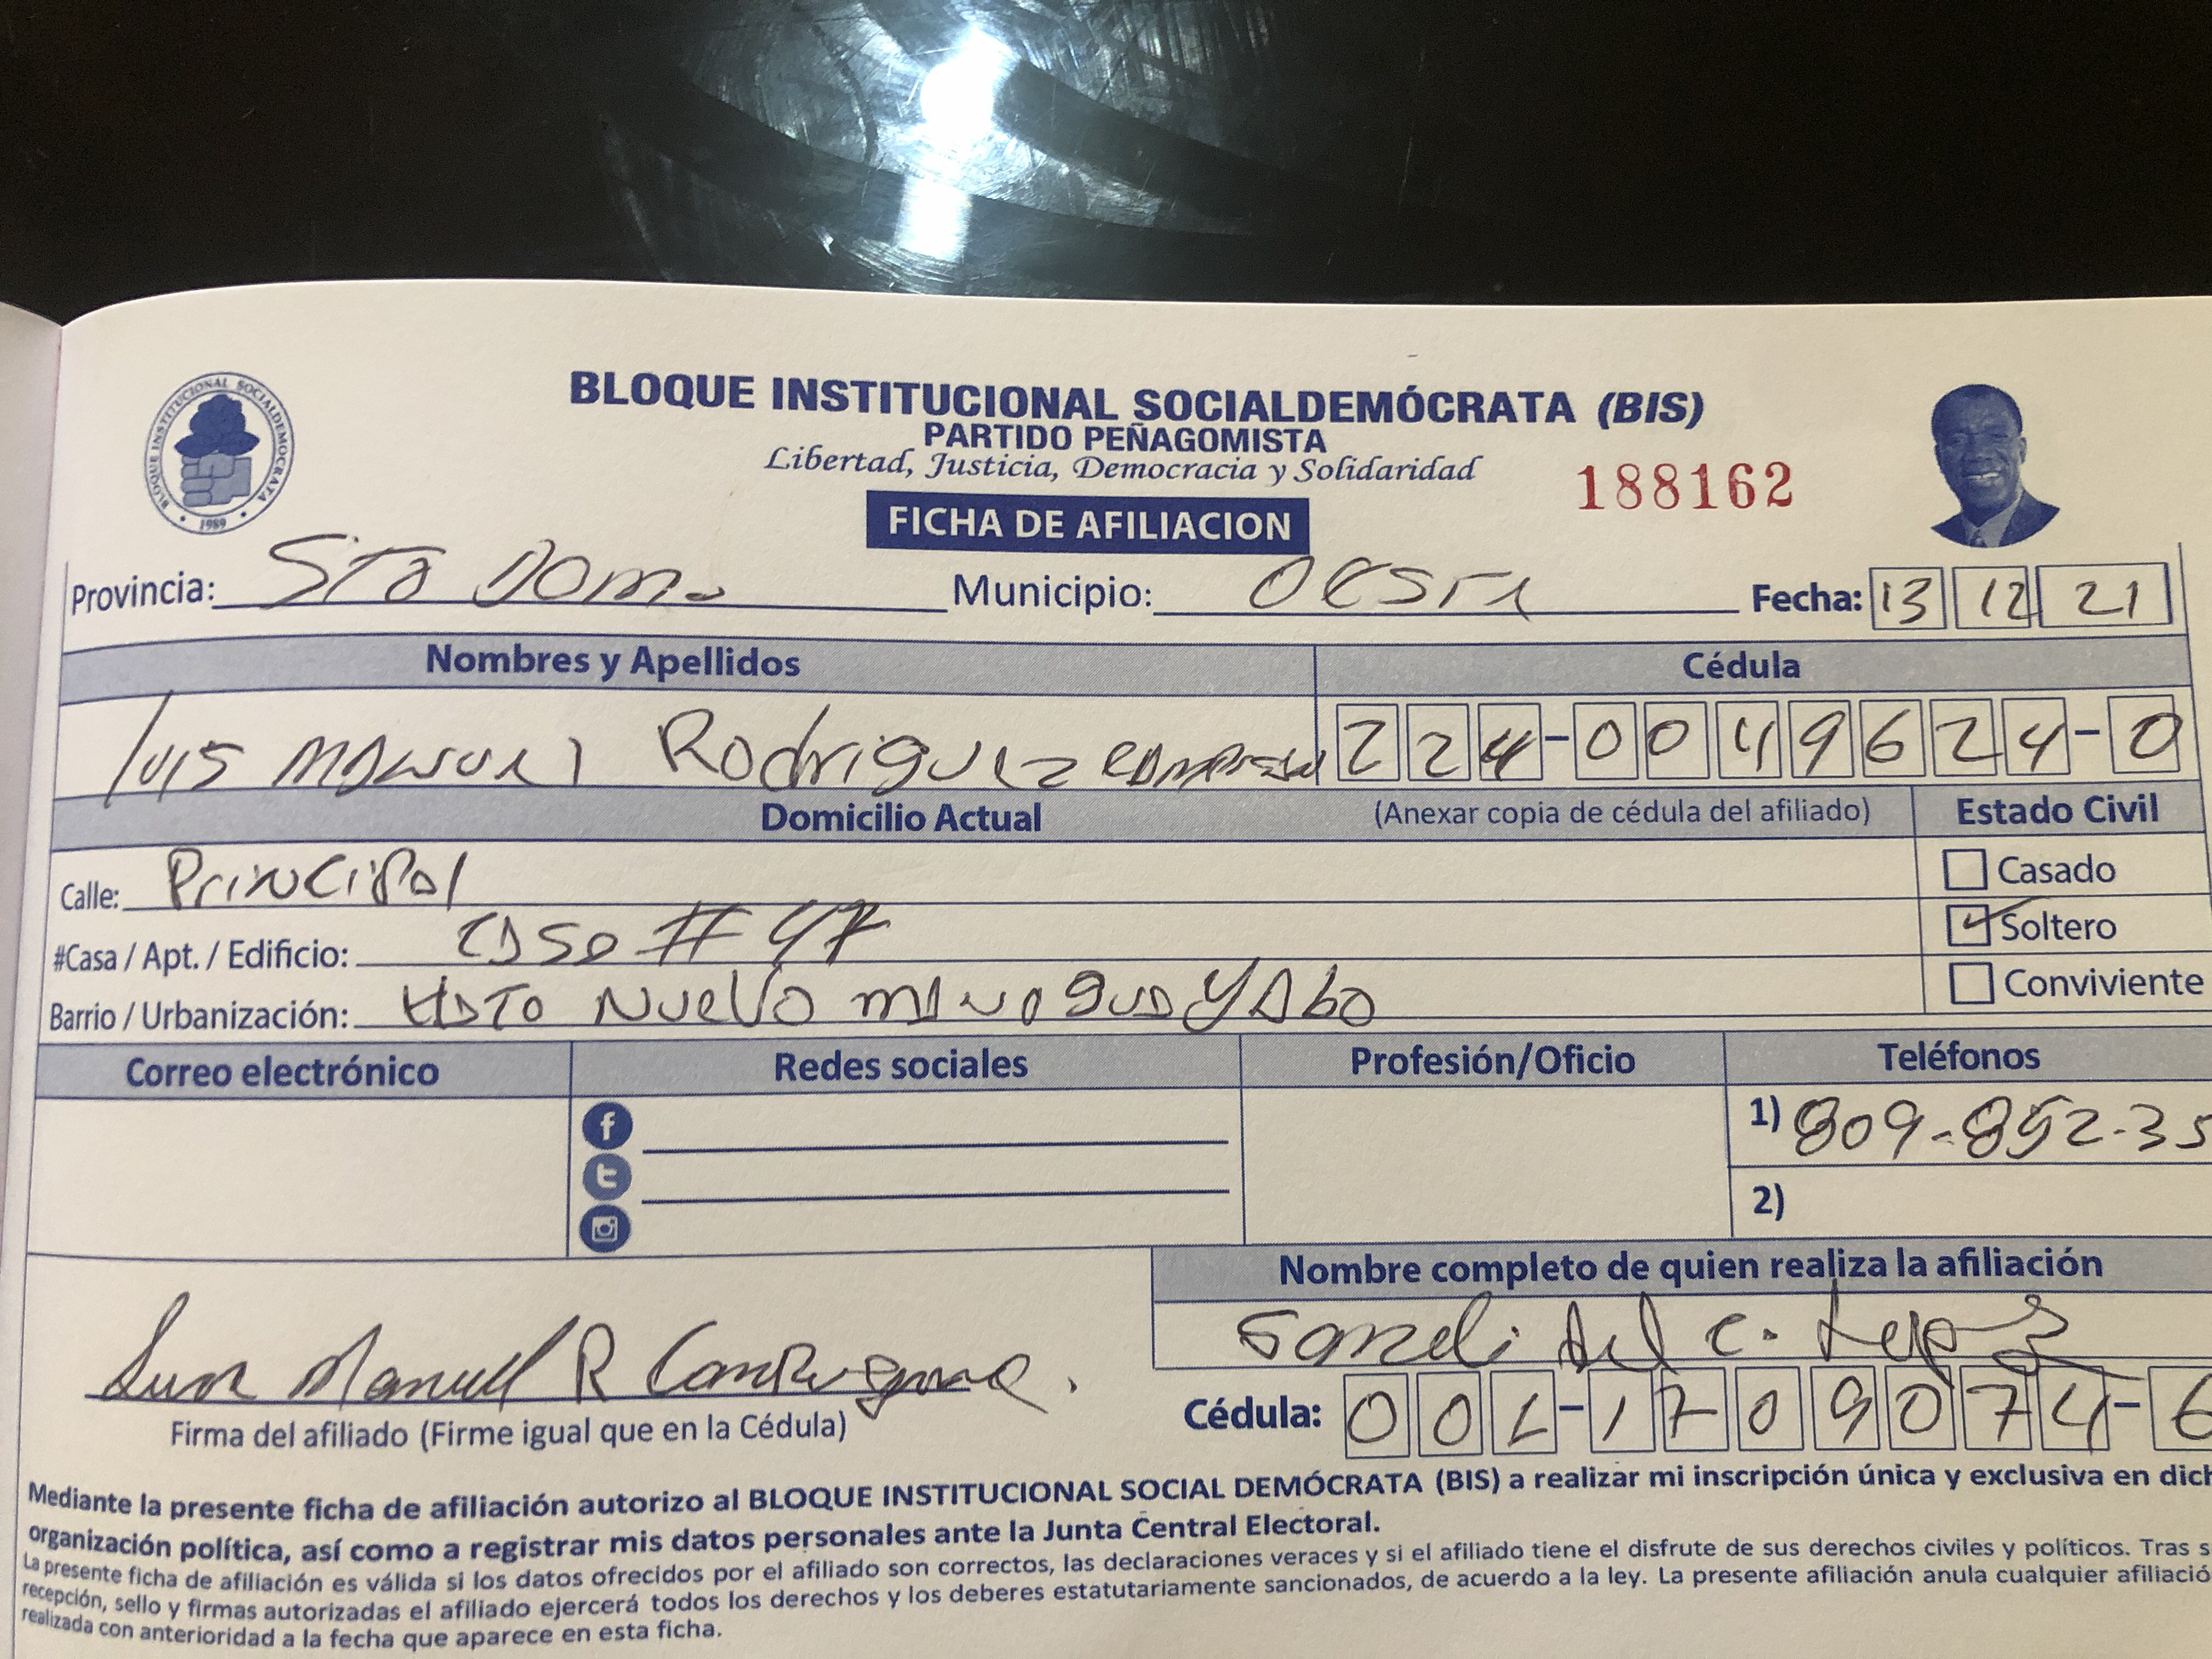 BLOQUE INSTITUCIONAL SOCIALDEMOCRATA
1989
BLOQUE INSTITUCIONAL SOCIALDEMÓCRATA (BIS)
PARTIDO PEÑAGOMISTA
Libertad, Justicia, Democracia y Solidaridad
188162
FICHA DE AFILIACION
Provincia: Sto Dom. Municipio: Oeste Fecha: 13 12 21
Nombres y Apellidos Cédula
Luis Manuel Rodriguez 224-0049624-0
Domicilio Actual (Anexar copia de cédula del afiliado) Estado Civil
Calle: Principal Casado
#Casa / Apt. / Edificio: Casa # 47 Soltero
Barrio / Urbanización: Hato Nuevo manoguayabo Conviviente
Correo electrónico Redes sociales Profesión/Oficio Teléfonos
1) 809-852-35
2)
Nombre completo de quien realiza la afiliación
del C. Lepez
Luis Manuel R
Firma del afiliado (Firme igual que en la Cédula)
Cédula: 001-1709074-6
Mediante la presente ficha de afiliación autorizo al BLOQUE INSTITUCIONAL SOCIAL DEMÓCRATA (BIS) a realizar mi inscripción única y exclusiva en dich
organización política, así como a registrar mis datos personales ante la Junta Central Electoral.
La presente ficha de afiliación es válida si los datos ofrecidos por el afiliado son correctos, las declaraciones veraces y si el afiliado tiene el disfrute de sus derechos civiles y políticos. Tras s
recepción, sello y firmas autorizadas el afiliado ejercerá todos los derechos y los deberes estatutariamente sancionados, de acuerdo a la ley. La presente afiliación anula cualquier afiliació
realizada con anterioridad a la fecha que aparece en esta ficha.